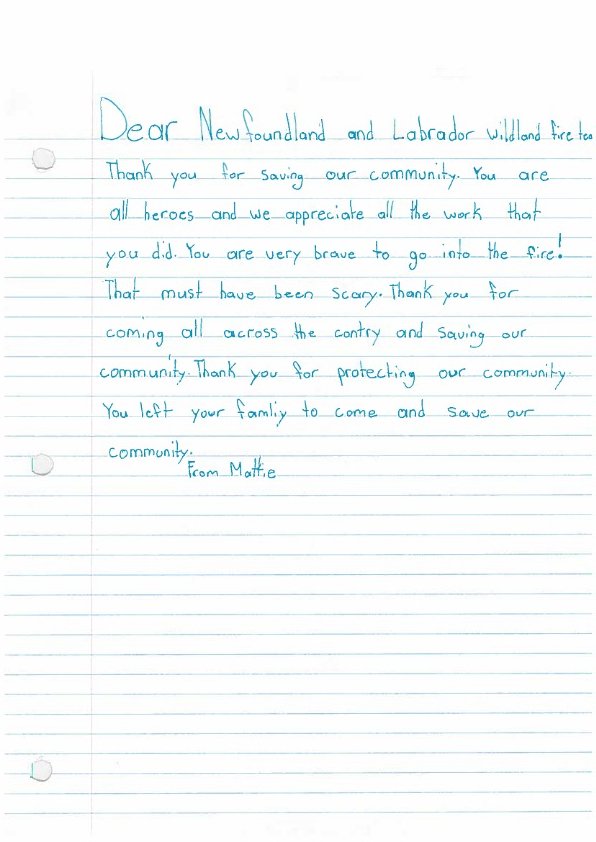 Dear Newfoundland and Labrador wildland fire tea
Thank you for saving our community. You are
all heroes and we appreciate all the work that
you did. You are very brave to go into the fire!
That must have been scary. Thank you for
coming all across the contry and saving our
community. Thank you for protecting our community.
You left your famliy to come and save our
community.
From Mattie